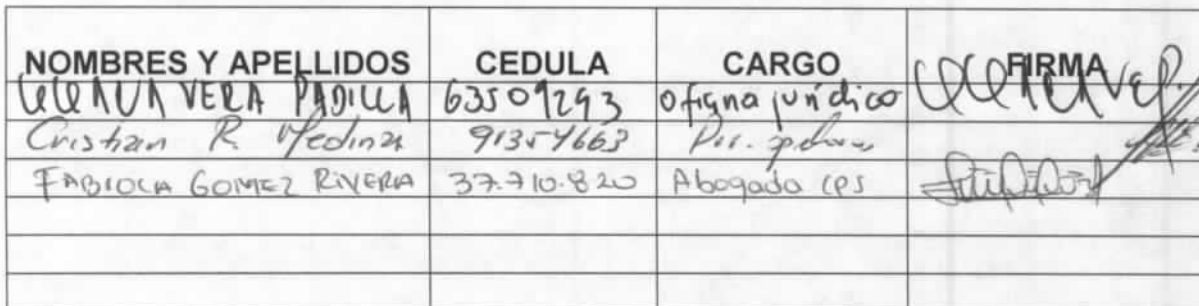 NOMBRES Y APELLIDOS CEDULA CARGO FIRMA
VERA PADILLA 63509293 oficina juridico
Cristian R. Medina 91354663
FABIOLA GOMEZ RIVERA 37.710.820 Abogada CPS